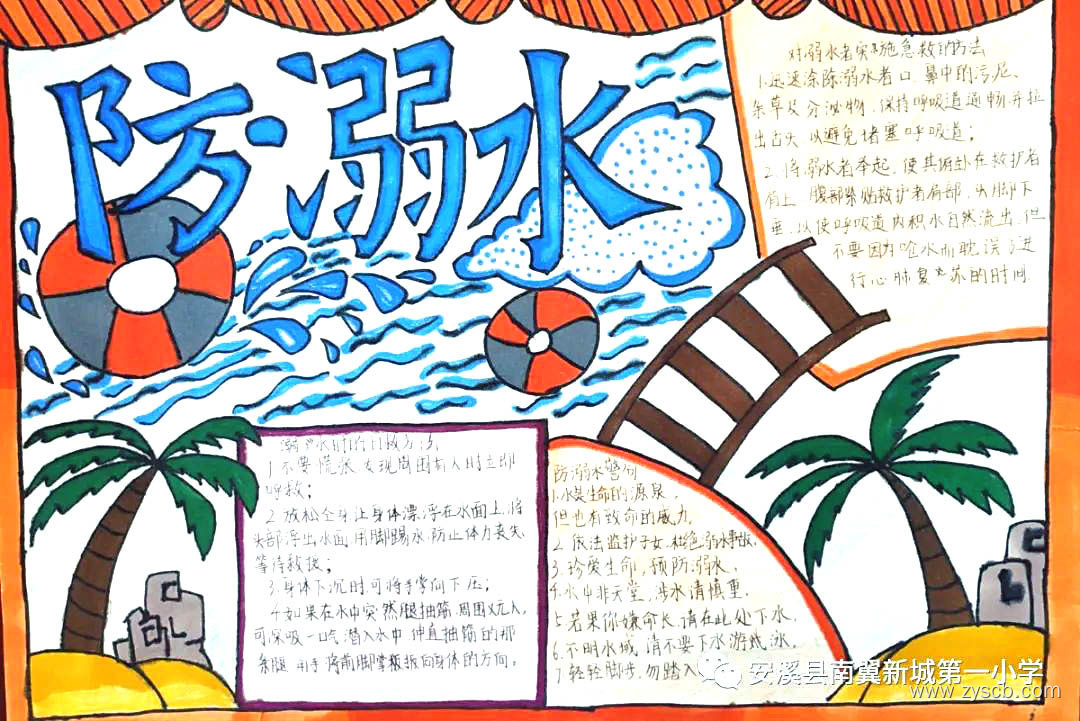 防溺水
对溺水者实施急救的方法
1.迅速涂除溺水者口、鼻中的污泥、
杂草及分泌物,保持呼吸道通畅并拉
出舌头,以避免堵塞呼吸道;
2.将溺水者举起,使其俯卧在救护者
肩上,腹部紧贴救护者肩部,头脚下
垂,以使呼吸道内积水自然流出,但
不要因为呛水而耽误了进
行心肺复苏的时间.
溺水时的自救方法
1.不要慌张,发现周围有人时立即
呼救;
2.放松全身,让身体漂浮在水面上,将
头部浮出水面,用脚踢水,防止体力丧失,
等待救援;
3.身体下沉时,可将手掌向下压;
4.如果在水中突然腿抽筋,周围又无人,
可深吸一口气潜入水中,伸直抽筋的那
条腿,用手将前脚掌板扳向身体的方向。
防溺水警句
1.水是生命的源泉,
但也有致命的威力,
2.依法监护子女,杜绝溺水事故,
3.珍爱生命,预防溺水,
4.水中非天堂,涉水请慎重,
5.若果你嫌命长,请在此处下水,
6.不明水域,请不要下水游戏泳,
7.轻轻脚步,勿踏入
安溪县南翼新城第一小学
www.zyscb.com